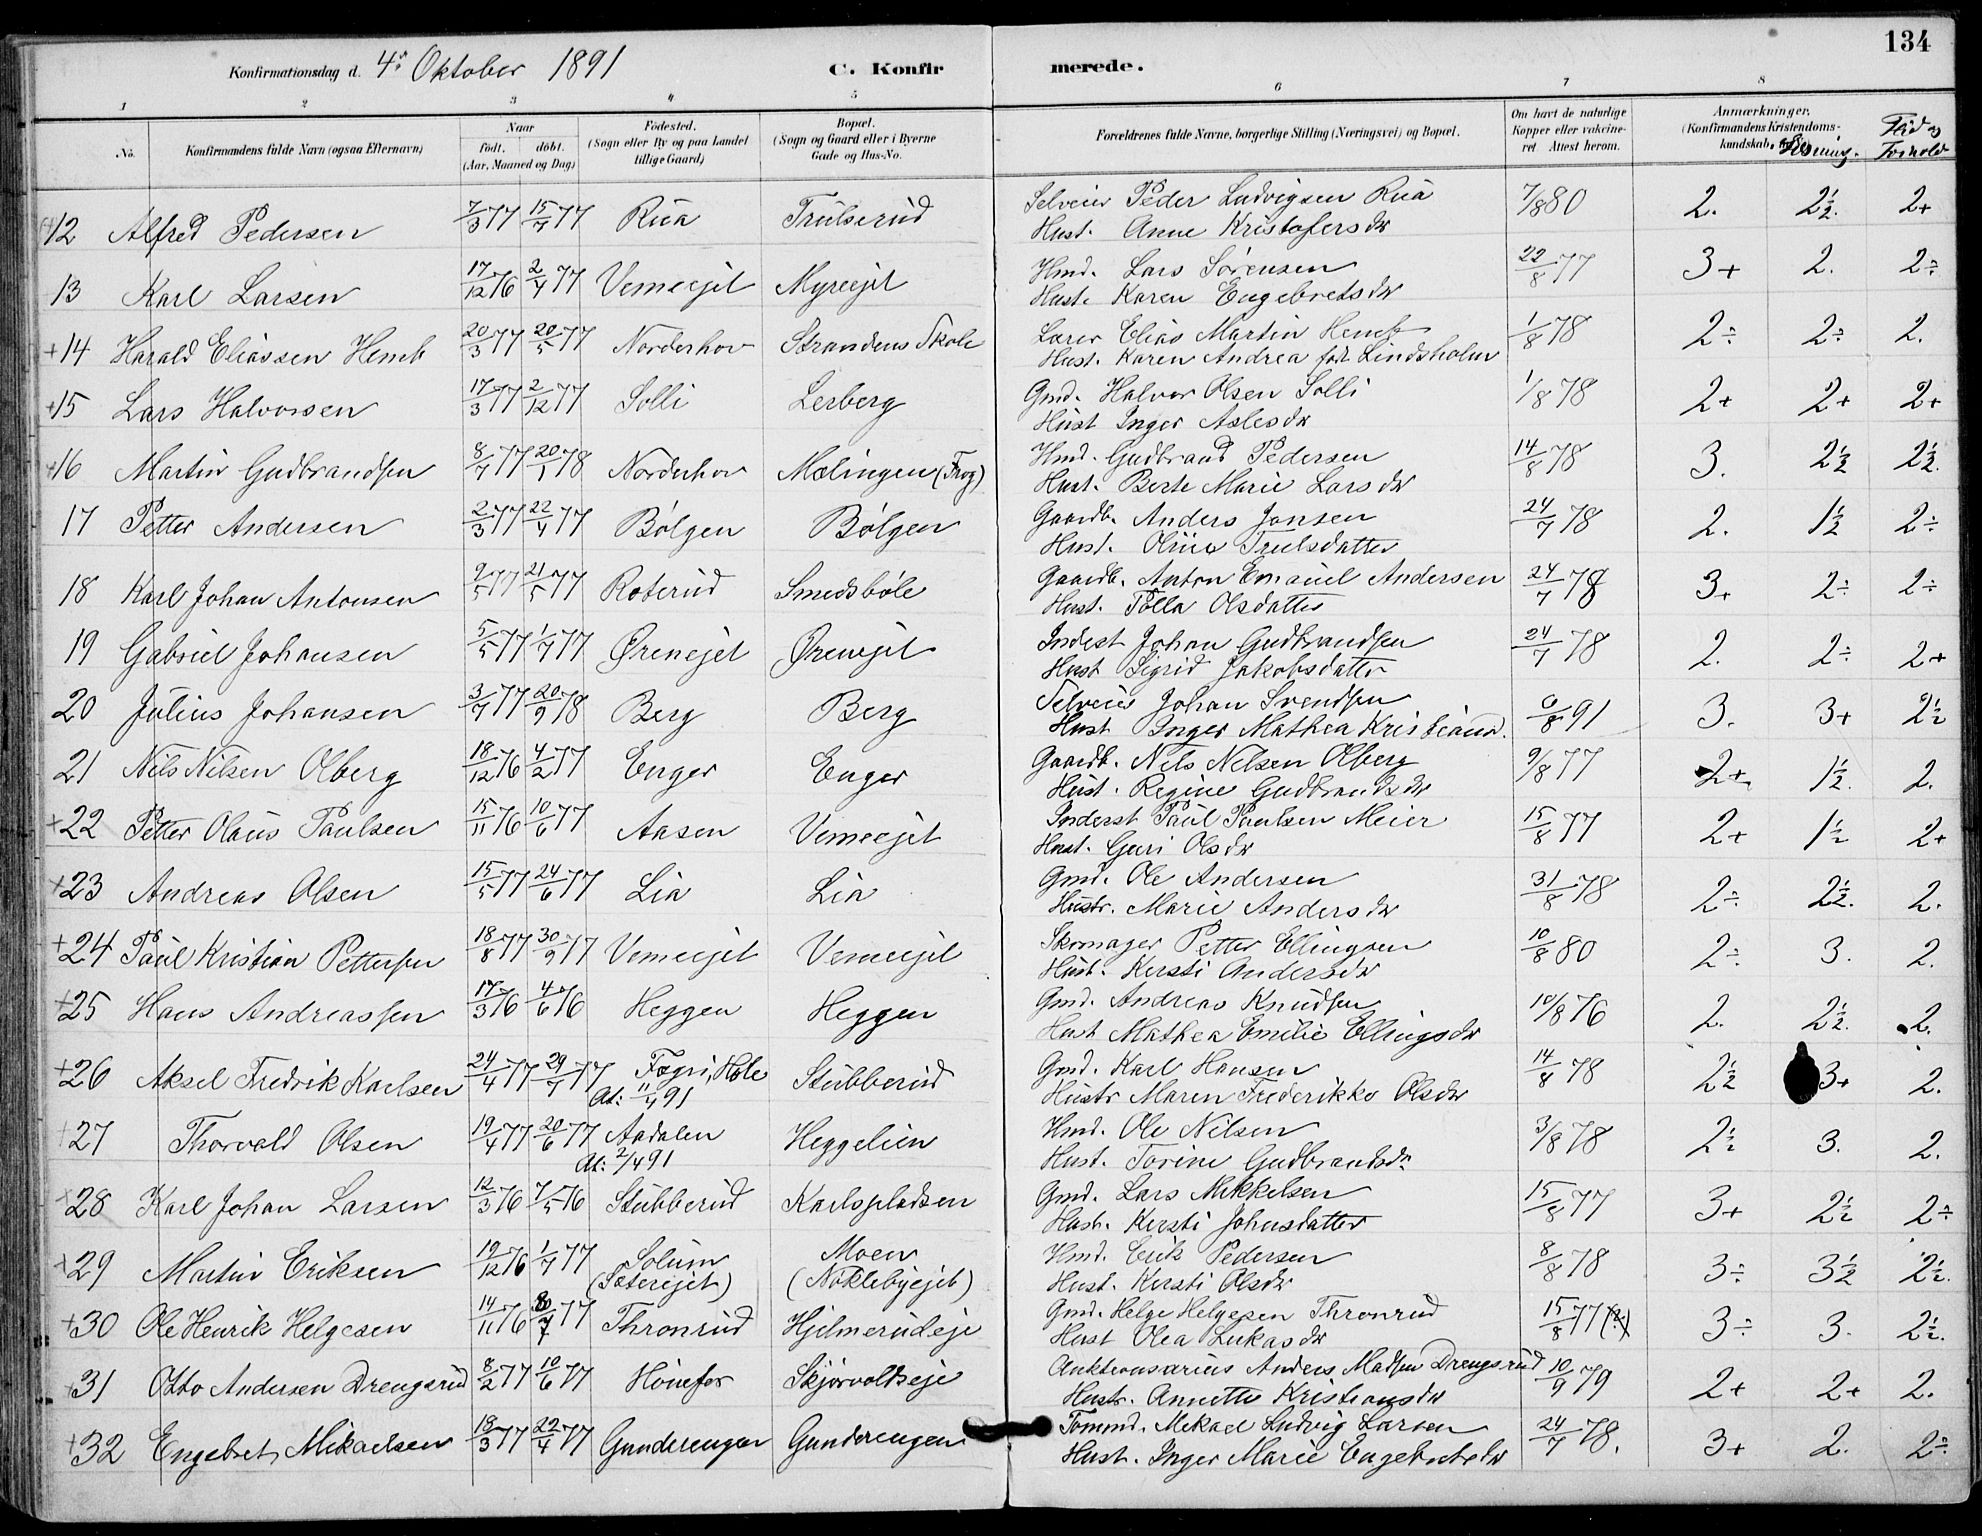 134
Konfirmationsdag d. 4de Oktober 1891 C. Konfirmerede.
1 2 3 4 5 6 7 8
No. Konfirmandens fulde Navn (ogsaa Efternavn) Naar født. døbt. (Aar, Maaned og Dag) Fødested. (Sogn eller By og paa Landet tillige Gaard) Bopæl. (Sogn og Gaard eller i Byerne Gade og Hus-No. Forældrenes fulde Navne, borgerlige Stilling (Næringsvei) og Bopæl. Om havt de naturlige Kopper eller vakcineret Attest herom. Anmærkninger. (Konfirmandens Kristendomskundskab, Flid og Forhold
12 Alfred Pedersen 7/3 77 15/7 77 Rua Trulserud Selveier Peder Ludvigsen Rua 7/8 80 2. 2½. 2+
Hust. Anne Kristofersdr
13 Karl Larsen 17/12 76 2/4 77 Vemeejet Myreejet Hmd. Lars Sørensen 22/8 77 3+ 2. 2÷
Hust. Karen Engebretsdr
+14 Harald Eliassen Hemb 20/3 77 20/5 77 Norderhov Strandens Skole Lærer Elias Martin Hemb 1/8 78 2÷ 2÷ 2.
Hust. Karen Andrea fød Lindsholm
+15 Lars Halvorsen 17/3 77 2/12 77 Solli Lerberg Gmd. Halvor Olsen Solli 1/8 78 2+ 2+ 2+
Hust Inger Aslesdr
+16 Martin Gudbrandsen 8/7 77 20/1 78 Norderhov Mælingen (Frog) Hmd. Gudbrand Pedersen 14/8 78 3. 2½ 2½.
Hust. Berte Marie Larsdr
17 Petter Andersen 2/3 77 22/4 77 Bølgen Bølgen Gaardb. Anders Jonsen 24/7 78 2. 1½ 2÷
Hust. Oline Trulsdatter
18 Karl Johan Antonsen 9/5 77 21/5 77 Roterud Smedsbøle Gaardb. Anton Emanuel Andersen 24/7 78 3+ 2÷ 2÷
Hust. Polla Olsdatter
19 Gabriel Johansen 5/5 77 1/7 77 Øreneejet Øreneejet Inderst Johan Gudbrandsen 24/7 78 2. 2÷ 2+
Hust Sigrid Jakobsdatter
20 Julius Johansen 3/7 77 20/9 78 Berg Berg Selveier Johan Svendsen 6/8 91 3. 3+ 2½
Hust Inger Mathea Kristiansd.
21 Nils Nilsen Olberg 18/12 76 4/2 77 Enger Enger Gaardb. Nels Nelsen Olberg 9/8 77 2+ 1½. 2.
Hust. Regine Gudbrandsdr
+22 Petter Olaus Paulsen 15/11 76 10/6 77 Aasen Vemeejet Inderst Paul Paulsen Meier 15/8 77 2+ 1½ 2+
Hust. Guri Olsdr
+23 Andreas Olsen 15/5 77 24/6 77 Lia Lia Gmd. Ole Andersen 31/8 78 2÷ 2½. 2.
Hustr. Marie Andersdr
+24 Paul Kristian Pettersen 18/8 77 30/9 77 Vemeejet Vemeejet Skomager Petter Ellingsen 10/8 80 2÷ 3. 2.
Hust. Kersti Andersdr
+25 Hans Andreassen 17/3 76 4/6 76 Heggen Heggen Gmd. Andreas Knudsen 10/8 76 2. 2½. 2.
Hust Mathea Emilie Ellingsdr
+26 Aksel Fredrik Karlsen 24/4 77 29/7 77 Fægri, Hole Stubberud Gmd. Karl Hansen 14/8 78 2½ 3+ 2.
At: 11/4 91 Hustr Maren Frederikke Olsdr
+27 Thorvald Olsen 19/4 77 20/6 77 Aadalen Heggelien Hmd. Ole Nilsen 3/8 78 2½ 3. 2.
At: 2/4 91 Hust. Torine Gudbrandsdr.
+28 Karl Johan Larsen 12/3 76 7/5 76 Stubberud Karlspladsen Gmd. Lars Mikkelsen 15/8 77 3+ 2½ 2÷
Hust. Kersti Johnsdatter
+29 Martin Eriksen 19/12 76 1/7 77 Solum Moen Hmd. Erik Pedersen 8/8 78 3÷ 3½ 2½.
(Sætereejet) (Noklebyejet) Hust. Kersti Olsdr
+30 Ole Henrik Helgesen 14/11 76 8/7 77 Thronrud Hjelmerudeje Gmd. Helge Helgesen Thronrud 15/8 77 3÷ 3. 2½.
Hust Olea Lukasdr
+31 Otto Andersen Drengsrud 8/2 77 10/6 77 Hönefos Skjørvoldseje Auktionsarius Anders Madsen Drengsrud 10/9 79 2+ 2+ 2.
Hustr. Annette Kristiansdr
+32 Engebret Mikaelsen 18/3 77 22/4 77 Gunderengen Gunderengen Tømmd. Mikael Ludvig Larsen 24/7 78. 3+ 2. 2÷
Hust. Inger Marie Engebretsdr